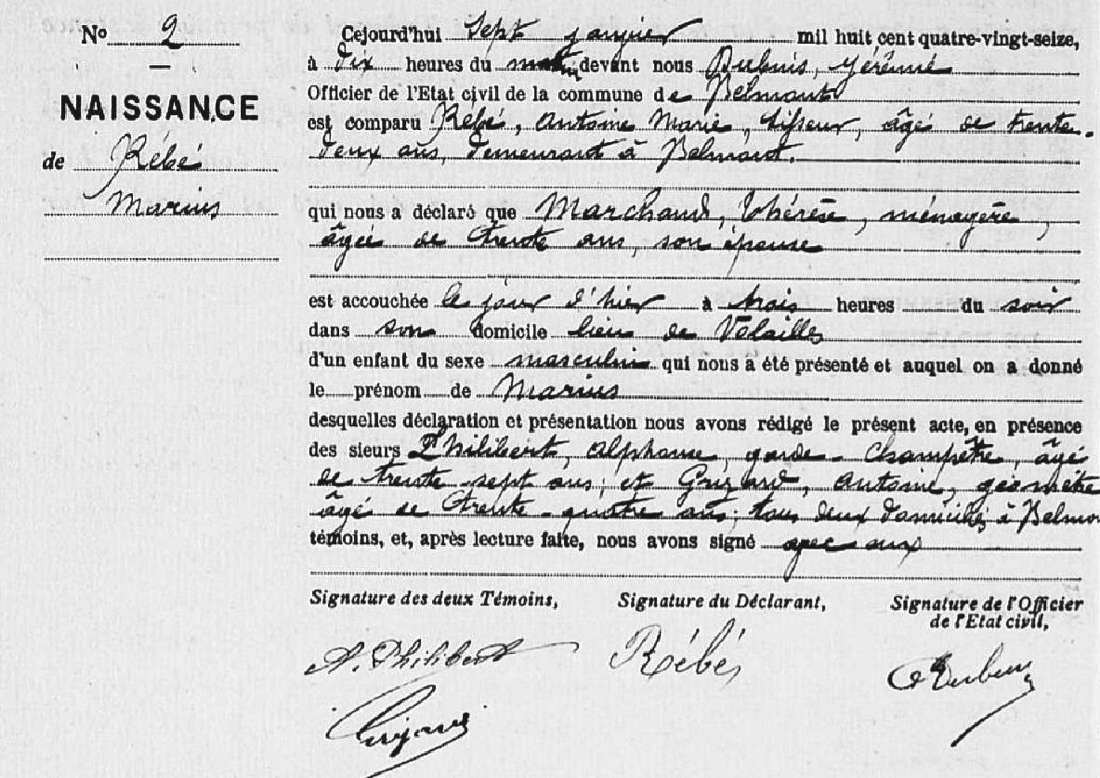 Nº 2
NAISSANCE
de Rébé
Marius
Cejourd'hui Sept janvier mil huit cent quatre-vingt-seize,
à dix heures du matin devant nous Dubuis, Jérémie
Officier de l'Etat civil de la commune de Belmont
est comparu Rébé, Antoine Marie, tisseur, âgé de trente-
deux ans, demeurant à Belmont.
qui nous a déclaré que Marchand, Thérèse, ménagère,
âgée de trente ans, son épouse
est accouchée le jour d'hier à trois heures du soir
dans son domicile lieu de
d'un enfant du sexe masculin qui nous a été présenté et auquel on a donné
le prénom de Marius
desquelles déclaration et présentation nous avons rédigé le présent acte, en présence
des sieurs Philibert, Alphonse, garde-Champêtre, âgé
de trente-sept ans, et Antoine, géomètre
âgé de trente-quatre ans, tous deux domiciliés à Belmon
témoins, et, après lecture faite, nous avons signé avec eux
Signature des deux Témoins,
Signature du Déclarant,
Signature de l'Officier
de l'Etat civil,
A. Philibert
Rébé